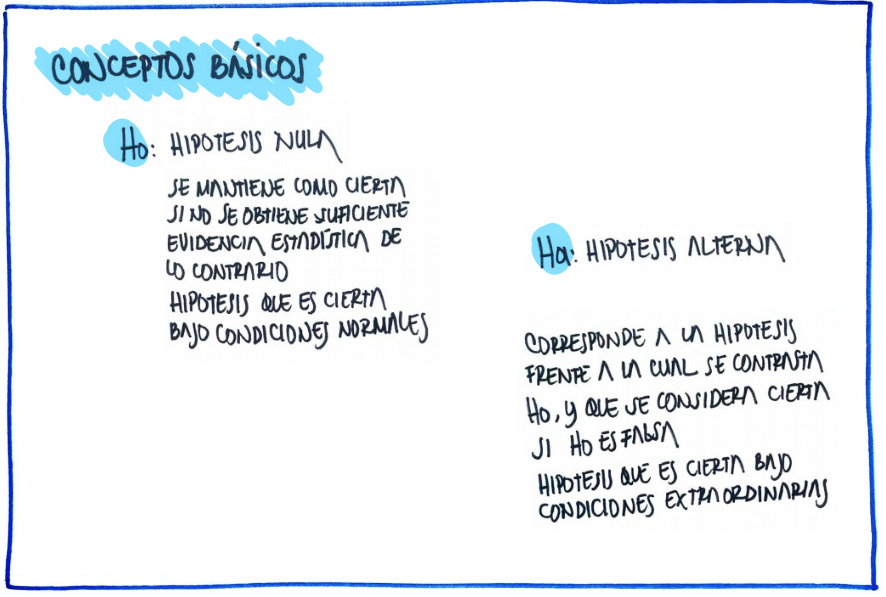 CONCEPTOS BÁSICOS
Ho: HIPOTESIS NULA
SE MANTIENE COMO CIERTA
SI NO SE OBTIENE SUFICIENTE
EVIDENCIA ESTADÍSTICA DE
LO CONTRARIO
HIPOTESIS QUE ES CIERTA
BAJO CONDICIONES NORMALES
Ha: HIPOTESIS ALTERNA
CORRESPONDE A LA HIPOTESIS
FRENTE A LA CUAL SE CONTRASTA
Ho, Y QUE SE CONSIDERA CIERTA
SI HO ES FALSA
HIPOTESIS QUE ES CIERTA BAJO
CONDICIONES EXTRAORDINARIAS